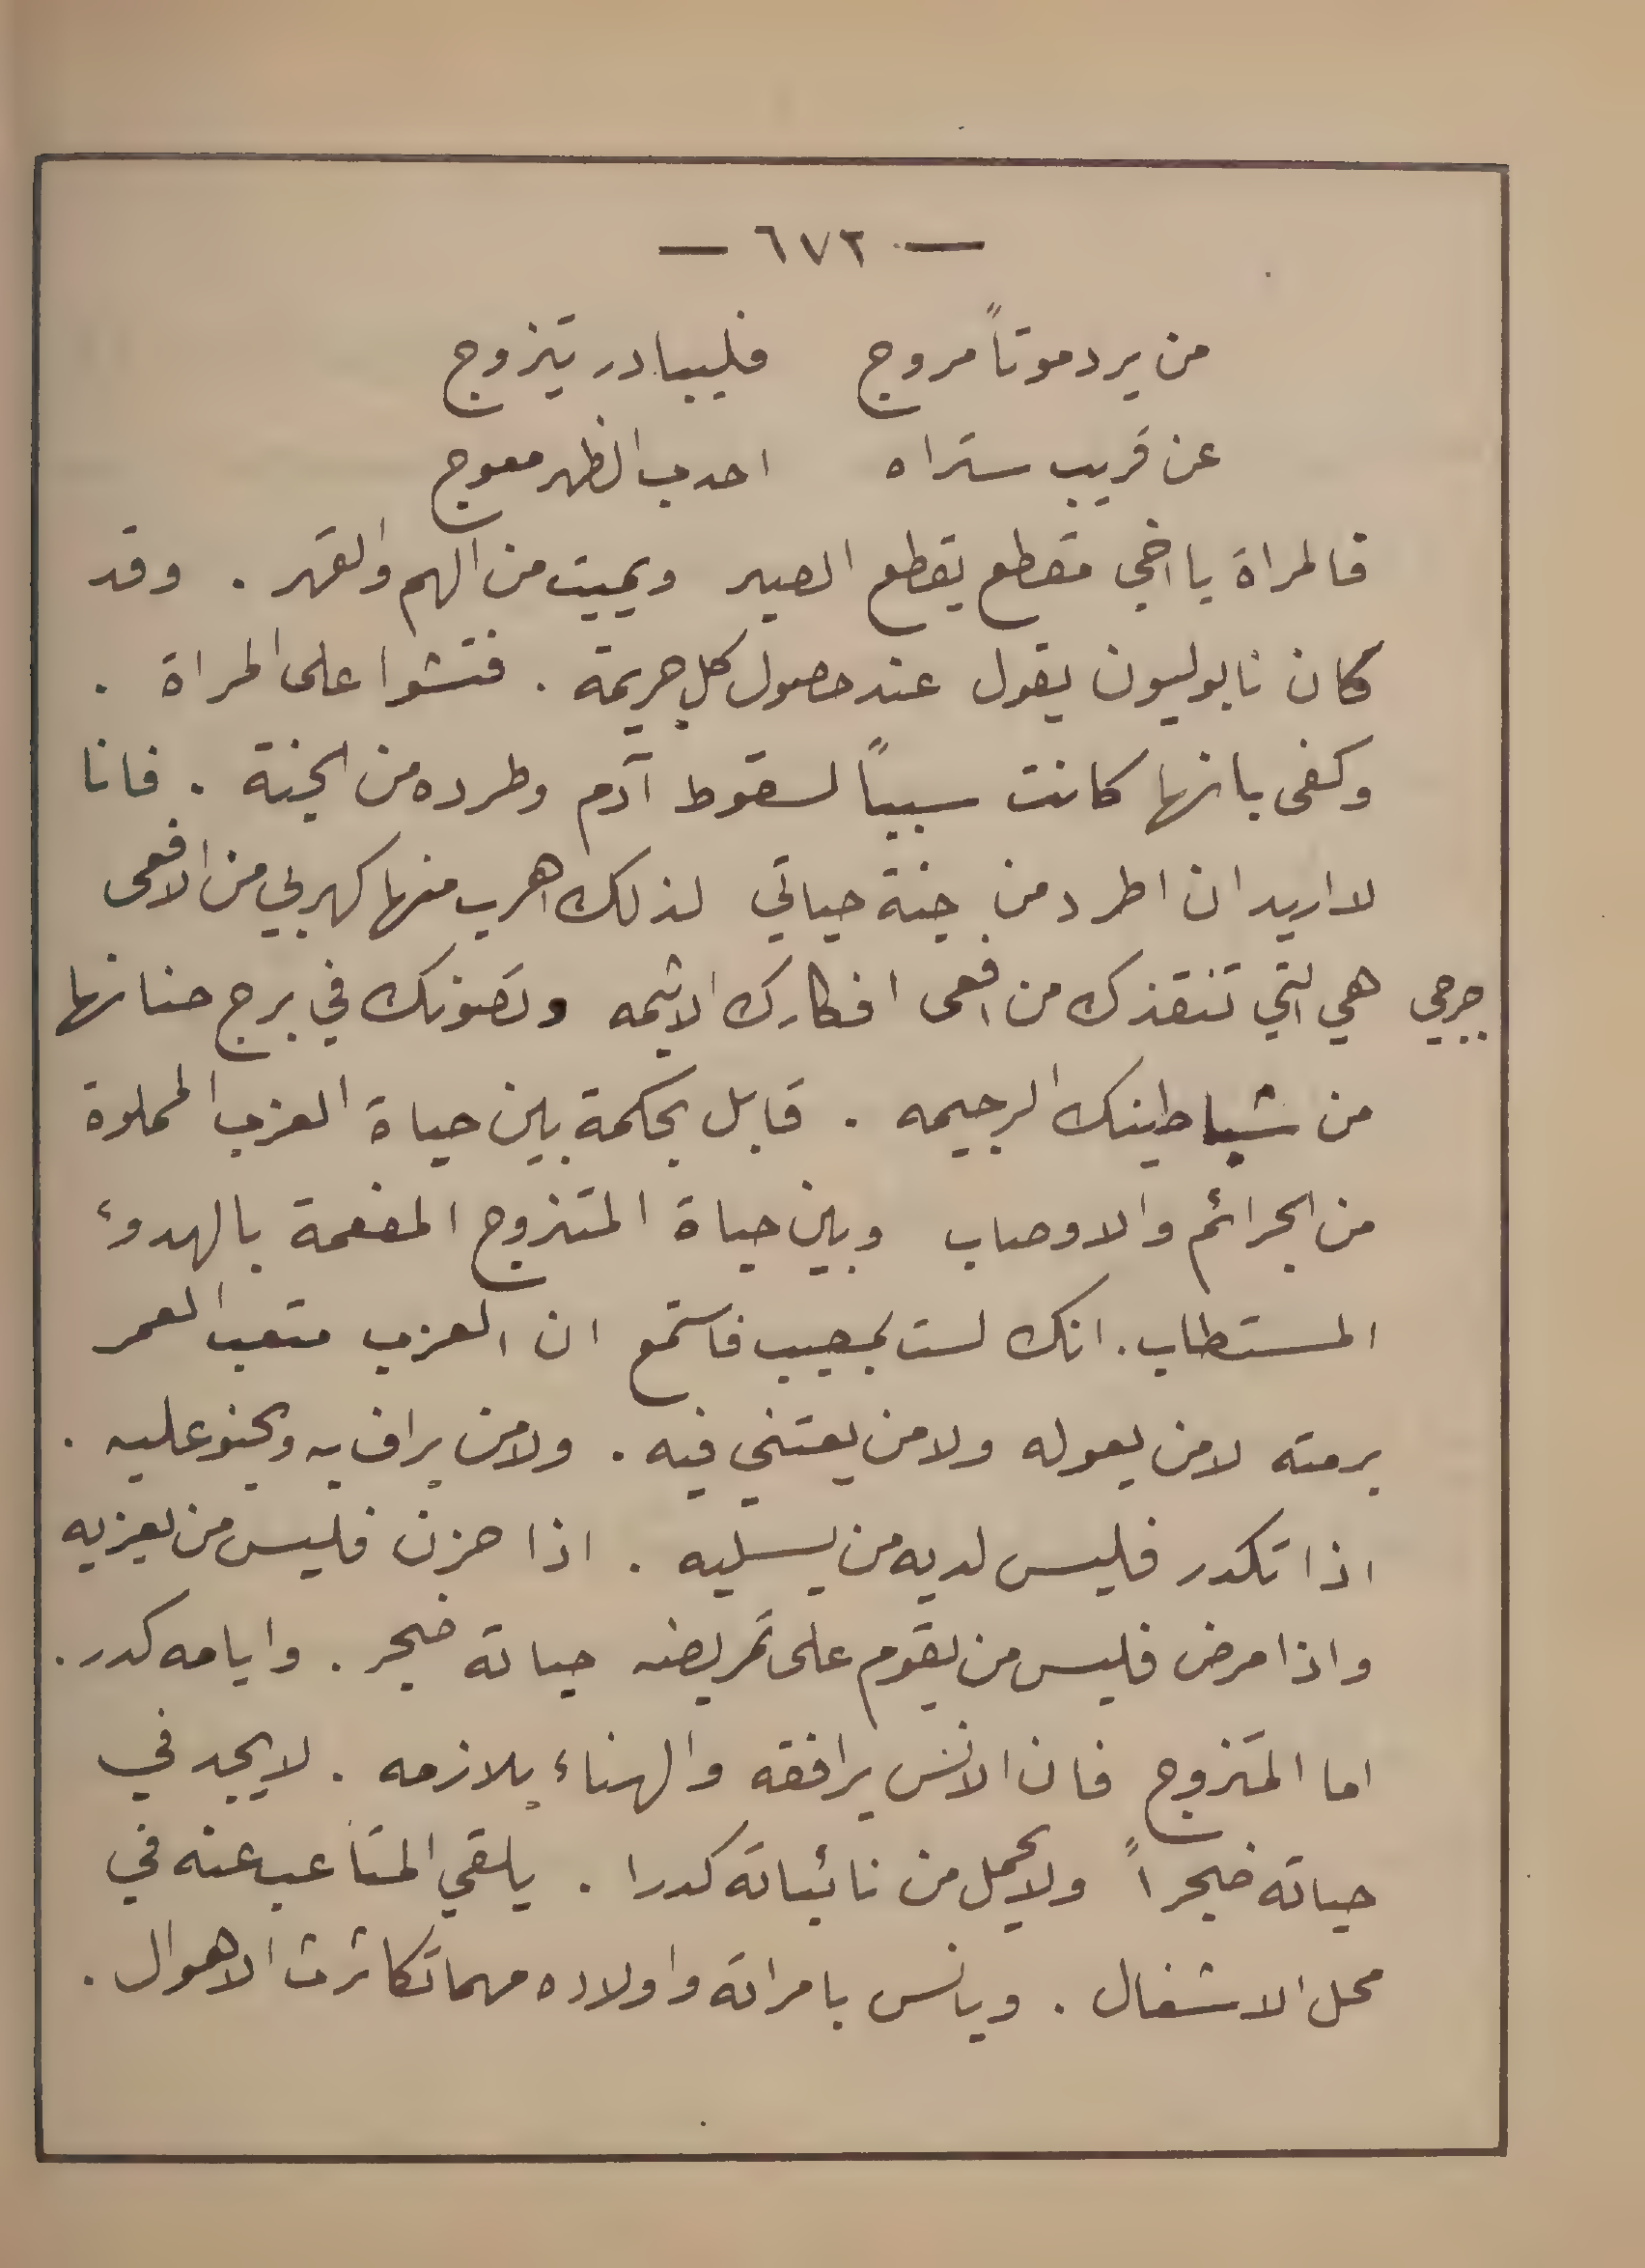 — ٦٧٢ —
من يرد موتاً مروج فليبادر يتزوج
عن قريب ستراه احدب الظهر معوج
فالمراة يا اخي مقطع يقطع الصبر ويميت من الهم والقهر . وقد
كان نابوليون يقول عند حصول كل جريمة . فتشوا على المراة .
وكفى بانها كانت سبباً لسقوط آدم وطرده من الجنة . فانا
لا اريد ان اطرد من جنة حياتي لذلك اهرب منها كهربي من الافعى
جرجي هي التي تنقذك من افعى افكارك الاثيمه وتصونك في برج حنانها
من شياطينك الرجيمه . قابل بحكمة بين حياة العزب المملوة
من الجرائم والاوصاب وبين حياة المتزوج المفعمة بالهدوء
المستطاب . انك لست بمصيب فاستمع ان العزب متعب العمر
برمته لا من يعوله ولا من يعتني فيه . ولا من يراف به ويحنو عليه .
اذا تكدر فليس لديه من يسليه . اذا حزن فليس من يعزيه
واذا مرض فليس من يقوم على تمريضه حياته ضجر . وايامه كدر .
اما المتزوج فان الانس يرافقه والهناء يلازمه . لا يجد في
حياته ضجراً ولا يحمل من نائباته كدرا . يلقي المتاعب عنه في
محل الاشغال . ويانس بامراته واولاده مهما تكاثرت الاهوال .